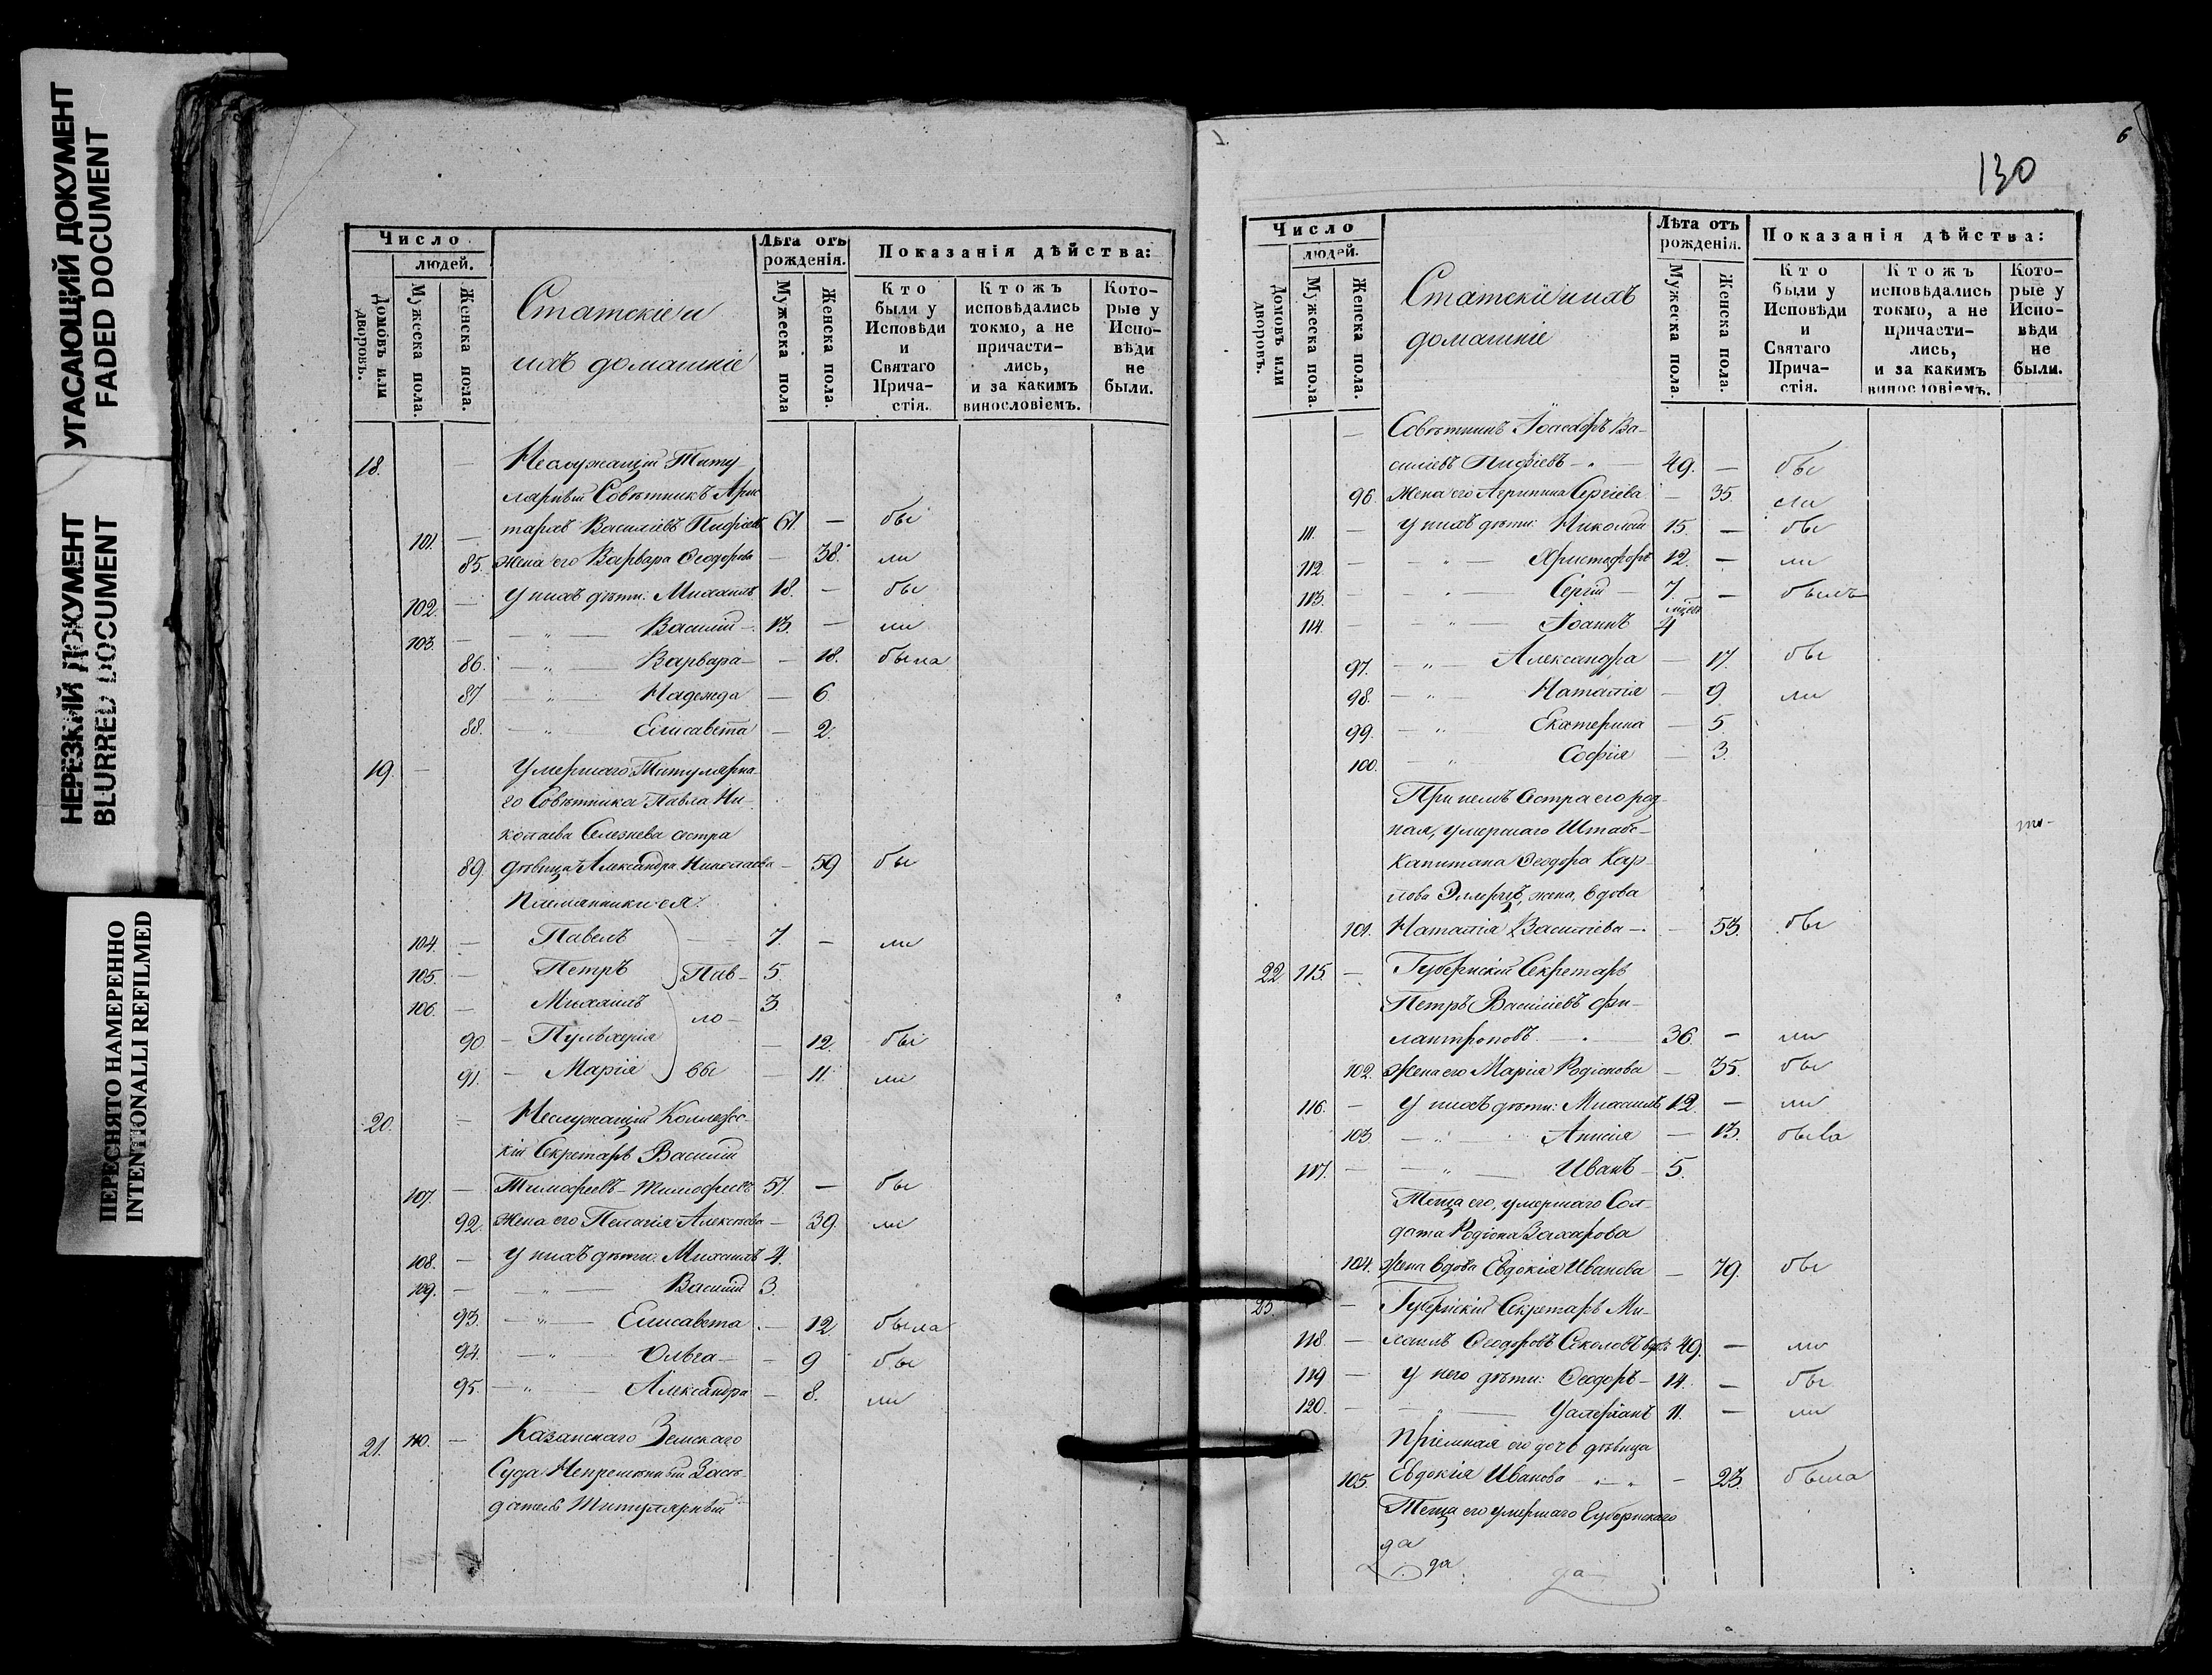 УГАСАЮЩИЙ ДОКУМЕНТ
FADED DOCUMENT
НЕРЕЗКИЙ ДОКУМЕНТ
BLURRED DOCUMENT
ПЕРЕСНЯТО НАМЕРЕННО
INTENTIONALLI REFILMED
Число
людей.
Домовъ или дворовъ.
Мужеска пола.
Женска пола.
Статскіе и
ихъ домашніе
Лѣта отъ рожденія.
Мужеска пола
Женска пола.
Показанія дѣйства:
Кто были у Исповѣди и Святаго Прича- стія.
Ктожъ исповѣдались токмо, а не причасти- лись, и за какимъ винословіемъ.
Кото- рые у Испо- вѣди не были.
18. — Неслужащій Титу
лярный Совѣтникъ Арис
101. — тархъ Василіевъ Пифіевъ 61. — бы
85. жена его Варвара Ѳеодорова — 38. ли
102. — у нихъ дѣти: Михаилъ 18. — бы
103. — — „ — Василій 13. — ли
86. — „ — Варвара — 18. была
87 — „ — Надежда — 6.
88. — „ — Елисавета — 2.
19. — Умершаго Титулярна
го Совѣтника Павла Ни
колаева Селезнева сестра
89. дѣвица Александра Николаева — 59 бы
Племянники ея:
104. — Павелъ — 7. — ли
105. — Петръ Пав- 5.
106. — Михаилъ ло- 3.
90 — Пульхерія — 12. бы
91. — Марія вы — 11. ли
20. — Неслужащій Коллежс
кій Секретарь Василій
107. — Тимофеевъ-Тимофеевъ 57. — бы
92. жена его Пелагія Алексѣева — 39. ли
108. — у нихъ дѣти: Михаилъ 4.
109. — — „ — Василій 3.
93. — „ — Елисавета — 12. была
94. — „ — Ольга — 9 бы
95. — „ — Александра — 8. ли
21. 110. — Казанскаго Земскаго
Суда Непремѣнный Засѣ-
датель Титулярный
6
130
Число
людей.
Домовъ или дворовъ.
Мужеска пола.
Женска пола.
Статскіе и ихъ
домашніе
Лѣта отъ рожденія.
Мужеска пола.
Женска пола.
Показанія дѣйства:
Кто были у Исповѣди и Святаго Прича- стія.
Ктожъ исповѣдались токмо, а не причасти- лись, и за какимъ винословіемъ.
Кото- рые у Испо- вѣди не были.
— Совѣтникъ Іоасафъ Ва-
силіевъ Пифіевъ — 49. — бы
96. жена его Агрипина Сергіева — 35. ли
111. — у нихъ дѣти: Николай 15. — бы
112. — — „ — Христофоръ 12. — ли
113. — — „ — Сергій — 7. — былъ
114. — — „ — Іоаннъ 4
97. — „ — Александра — 17. бы
98. — „ — Наталія — 9. ли
99. — „ — Екатерина — 5.
100. — „ — Софія — 3.
При немъ Сестра его род-
ная, умершаго Штабс-
Капитана Ѳеодора Кар-
лова жена, вдова
101. Наталія Василіева — 53. бы
22. 115. — Губернскій Секретарь
Петръ Василіевъ Фи-
лантроповъ — 36. — ли
102. Жена его Марія Родіонова — 35. бы
116. — у нихъ дѣти: Михаилъ 12. — ли
103 — „ — Анисія — 13. была
117. — — „ — Иванъ — 5.
Теща его, умершаго Сол-
дата Родіона Захарова
104. жена вдова Евдокія Иванова — 79. бы
23. — Губернскій Секретарь Ми-
118. — хаилъ Ѳеодоровъ Соколовъ вдовъ 49. — ли
119 — у него дѣти: Ѳеодоръ — 14. — бы
120. — — Уалеріанъ 11. — ли
Пріемная его дочь дѣвица
105. Евдокія Иванова — „ — 23. была
Теща его умершаго Губернскаго
да
да
да